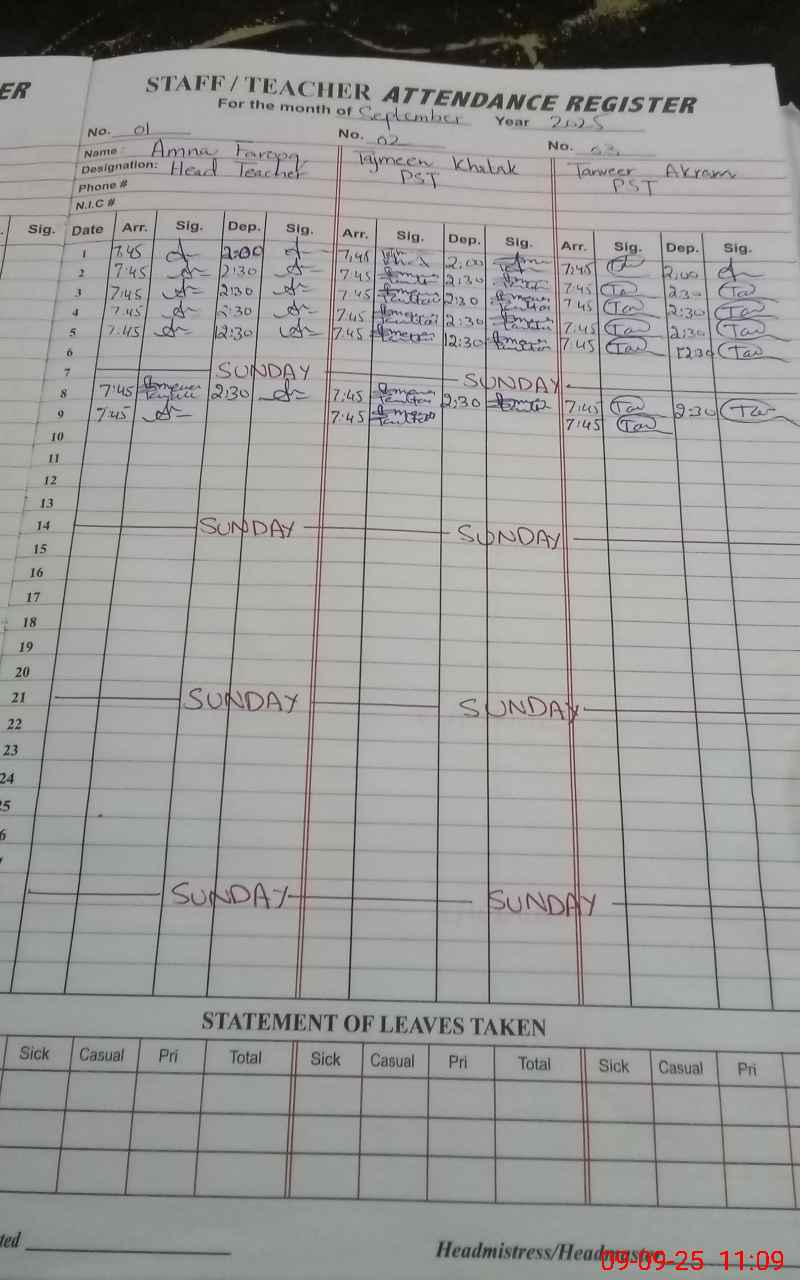 ER
STAFF / TEACHER ATTENDANCE REGISTER
For the month of September Year 2025
No. 01 No. 02 No. 03
Name: Amna Farooq Tajmeen Khatak Tanveer Akram
Designation: Head Teacher PST PST
Phone #
N.I.C #
Sig. Date Arr. Sig. Dep. Sig. Arr. Sig. Dep. Sig. Arr. Sig. Dep. Sig.
1 7:45 2:00 7:45 2:00 7:45 2:00
2 7:45 2:30 7:45 2:30 7:45 Tav 2:30 Tav
3 7:45 2:30 7:45 2:30 7:45 Tav 2:30 Tav
4 7:45 2:30 7:45 2:30 7:45 Tav 2:30 Tav
5 7:45 12:30 7:45 12:30 7:45 Tav 12:30 Tav
6
7 SUNDAY SUNDAY
8 7:45 2:30 7:45 2:30 7:45 Tav 2:30 Tav
9 7:45 7:45 7:45 Tav
10
11
12
13
14 SUNDAY SUNDAY
15
16
17
18
19
20
21 SUNDAY SUNDAY
22
23
24
25
6
SUNDAY SUNDAY
STATEMENT OF LEAVES TAKEN
Sick Casual Pri Total Sick Casual Pri Total Sick Casual Pri
ted
Headmistress/Headmaster
09-09-25 11:09